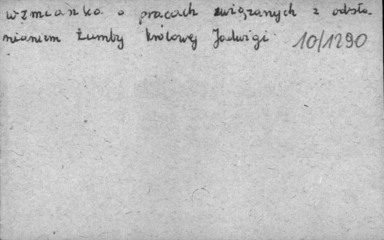 wzmianka o pracach związanych z odsła-
nianiem Łumby królowej Jadwigi 10/1290